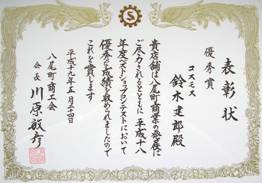 表彰状
優秀賞
コスモス
鈴木建郎殿
貴店舗は八尾町商業の発展に
ご尽力されるとともに平成十八
年度ベストショップコンテストにおいて
優秀な成績を収められましたので
これを賞します
平成十九年五月二十四日
八尾町商工会
会長 川原敏彦